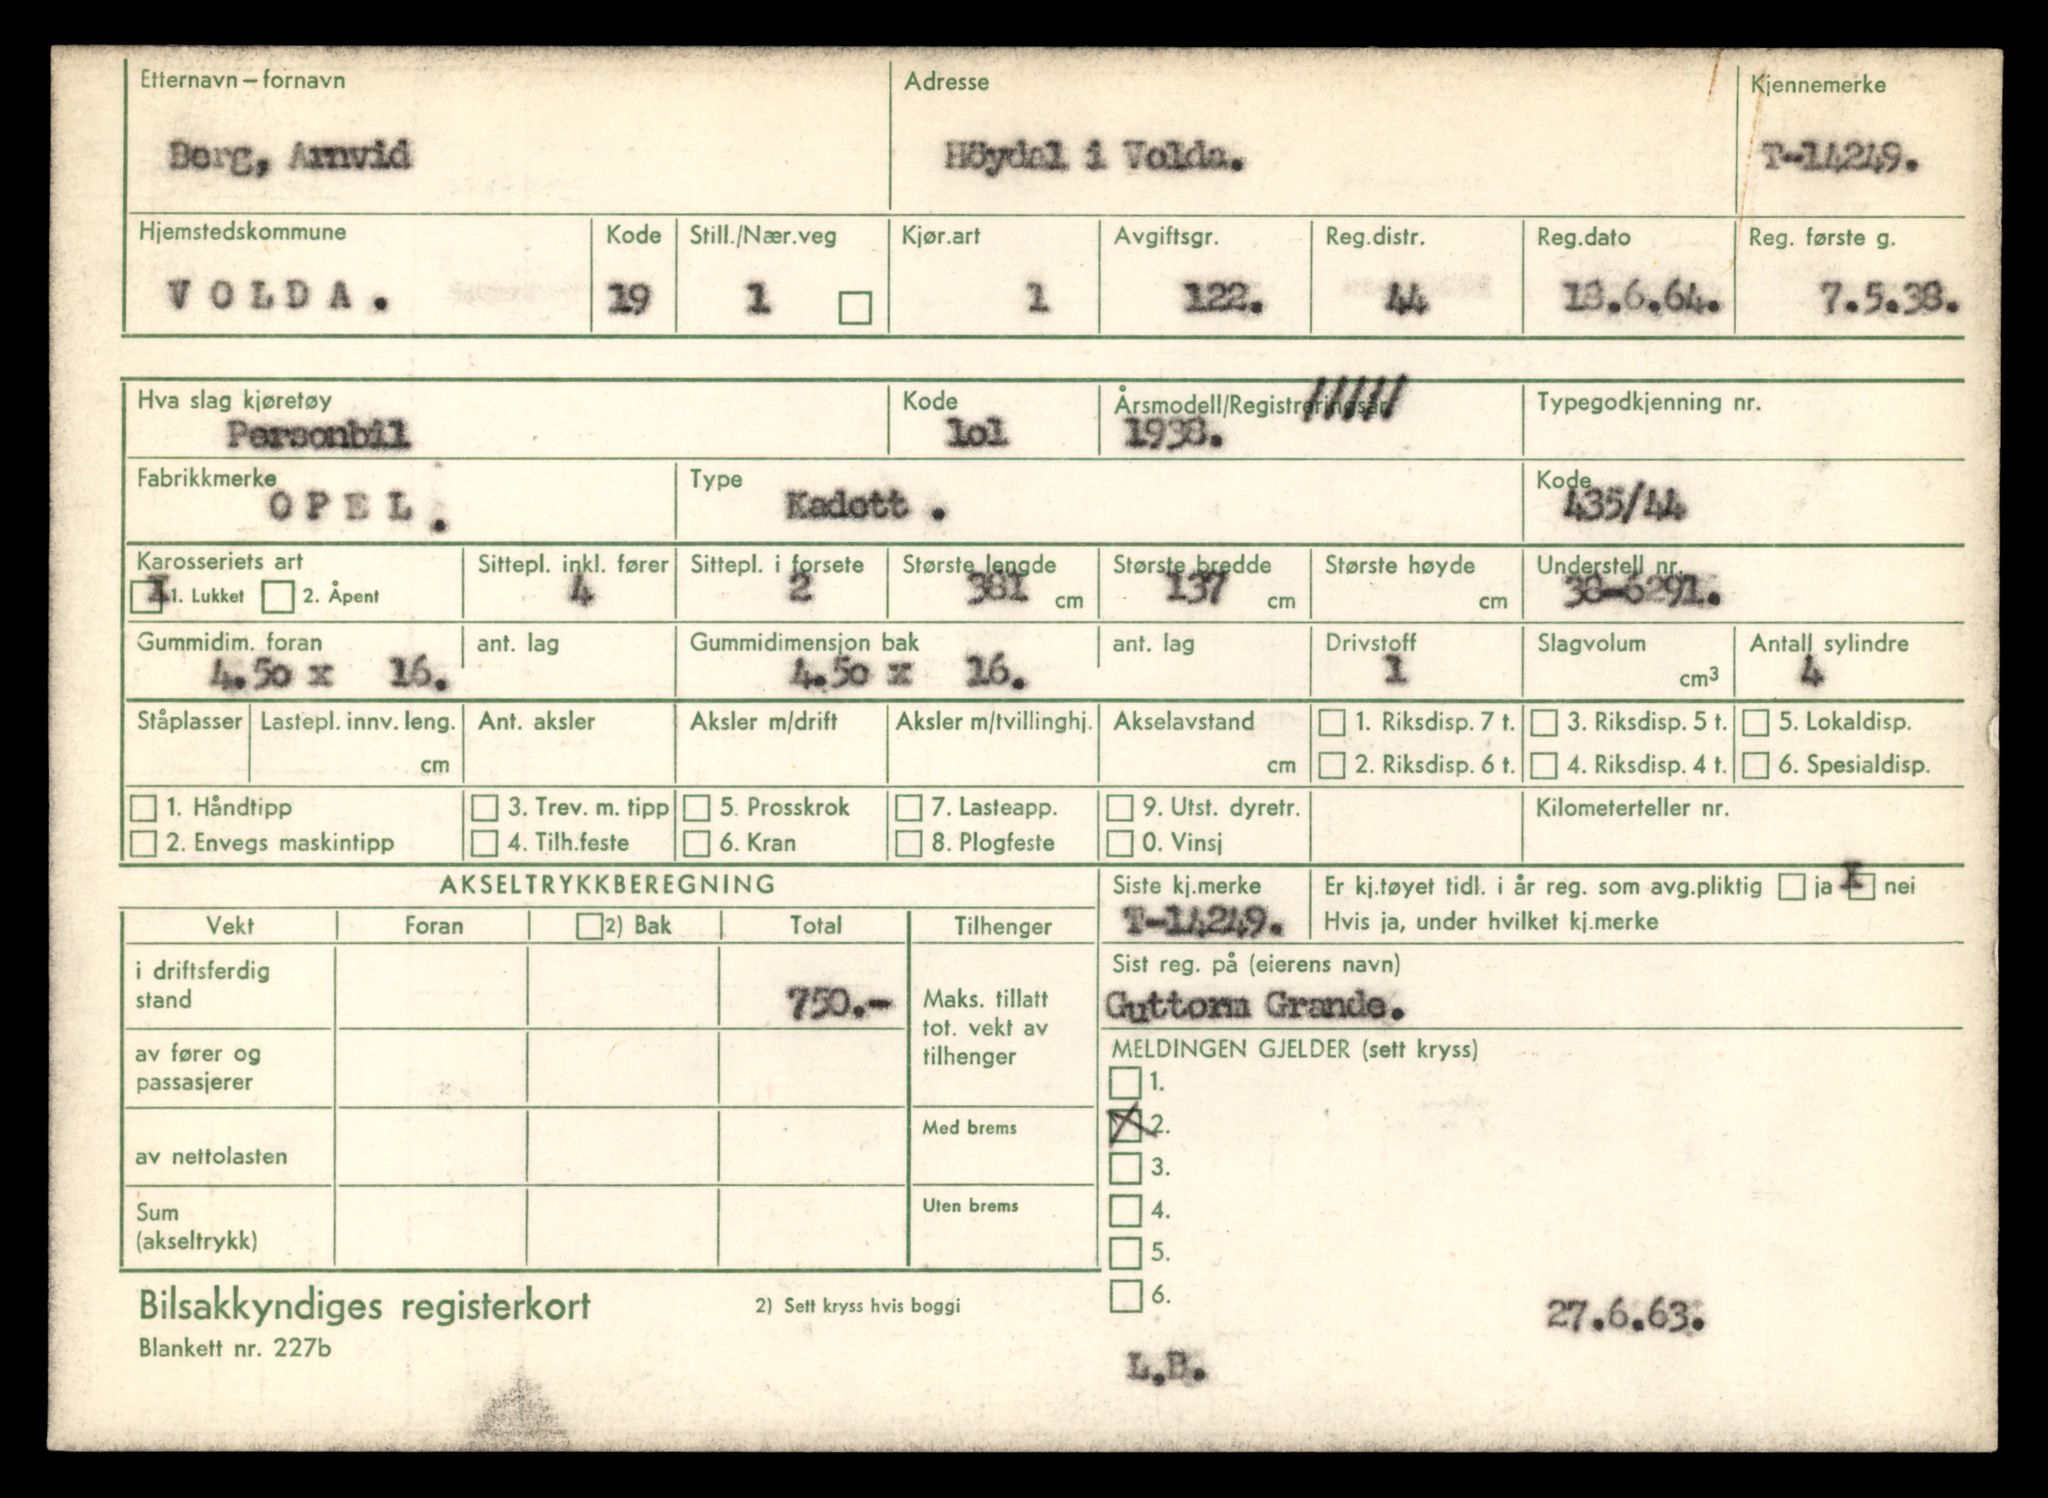 Etternavn – fornavn Adresse Kjennemerke
Borg, Arnvid Höydal i Volda. T-14249.
Hjemstedskommune Kode Still./Nær.veg Kjør.art Avgiftsgr. Reg.distr. Reg.dato Reg. første g.
VOLDA. 19 1 1 122. 44 18.6.64. 7.5.38.
Hva slag kjøretøy Kode Årsmodell/Registreringsår Typegodkjenning nr.
Personbil 1o1 1938. /////
Fabrikkmerke Type Kode
OPEL. Kadett . 435/44
Karosseriets art Sittepl. inkl. fører Sittepl. i forsete Største lengde Største bredde Største høyde Understell nr.
X 1. Lukket 2. Åpent 4 2 381 cm 137 cm cm 38-6291.
Gummidim. foran ant. lag Gummidimensjon bak ant. lag Drivstoff Slagvolum Antall sylindre
4.50 x 16. 4.50 x 16. 1 cm³ 4
Ståplasser Lastepl. innv. leng. Ant. aksler Aksler m/drift Aksler m/tvillinghj. Akselavstand 1. Riksdisp. 7 t. 3. Riksdisp. 5 t. 5. Lokaldisp.
cm cm 2. Riksdisp. 6 t. 4. Riksdisp. 4 t. 6. Spesialdisp.
1. Håndtipp 3. Trev. m. tipp 5. Prosskrok 7. Lasteapp. 9. Utst. dyretr. Kilometerteller nr.
2. Envegs maskintipp 4. Tilh.feste 6. Kran 8. Plogfeste 0. Vinsj
AKSELTRYKKBEREGNING Siste kj.merke Er kj.tøyet tidl. i år reg. som avg.pliktig ja X nei
Vekt Foran 2) Bak Total Tilhenger T-14249. Hvis ja, under hvilket kj.merke
i driftsferdig Sist reg. på (eierens navn)
stand 750.- Maks. tillatt Guttorm Grande.
tot. vekt av
av fører og tilhenger MELDINGEN GJELDER (sett kryss)
passasjerer 1.
Med brems X 2.
av nettolasten 3.
Sum Uten brems 4.
(akseltrykk) 5.
Bilsakkyndiges registerkort 2) Sett kryss hvis boggi 6. 27.6.63.
Blankett nr. 227b
L.B.